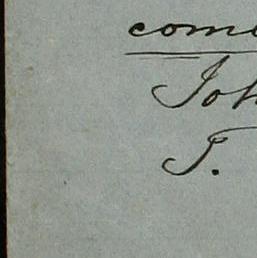 com
Joh
T.